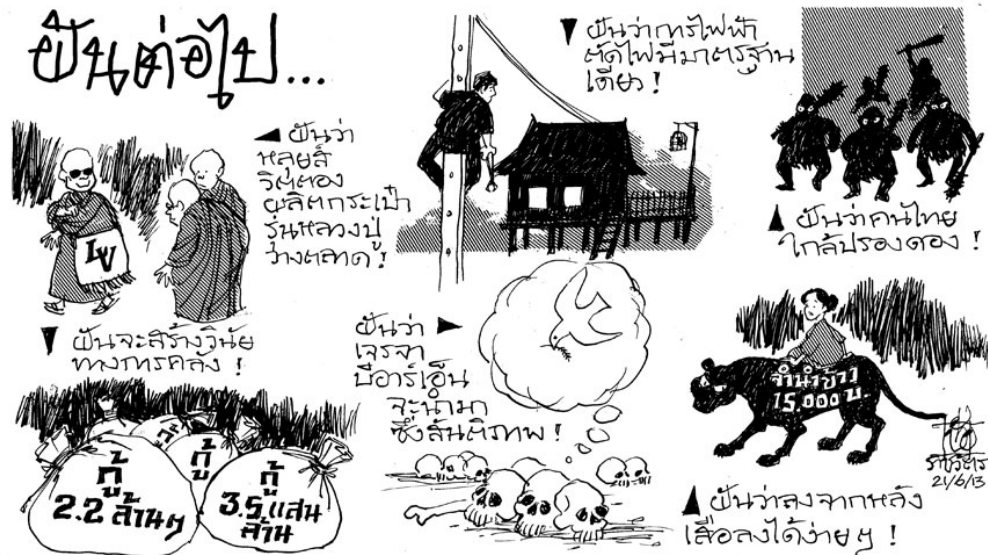 ฝันต่อไป...
◀ ฝันว่า
หลุยส์
วิตตอง
ผลิตกระเป๋า
รุ่นหลวงปู่
วางตลาด!
LV
▼ ฝันว่าการไฟฟ้า
ตัดไฟมีมาตรฐาน
เดียว!
▲ ฝันว่าคนไทย
ใกล้ปรองดอง!
▼ ฝันจะสร้างวินัย
ทางการคลัง!
กู้
2.2 ล้านๆ
กู้
กู้
กู้
3.5 แสน
ล้าน
ฝันว่า ▶
เจรจา
บีอาร์เอ็น
จะนำมา
ซึ่งสันติภาพ!
จำนำข้าว
15,000 บ.
▲ ฝันว่าลงจากหลัง
เสือลงได้ง่ายๆ!
21/6/13